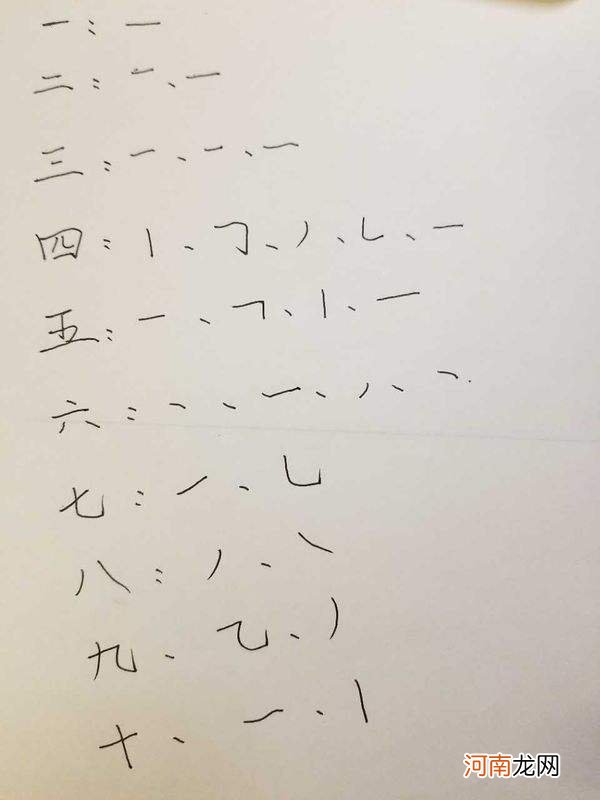 一：一
二：一、一
三：一、一、一
四：丨、𠃌、丿、乚、一
五：一、㇕、丨、一
六：丶、一、丿、丶
七：一、乚
八：丿、㇏
九、乙、丿
十、一、丨
河南龙网